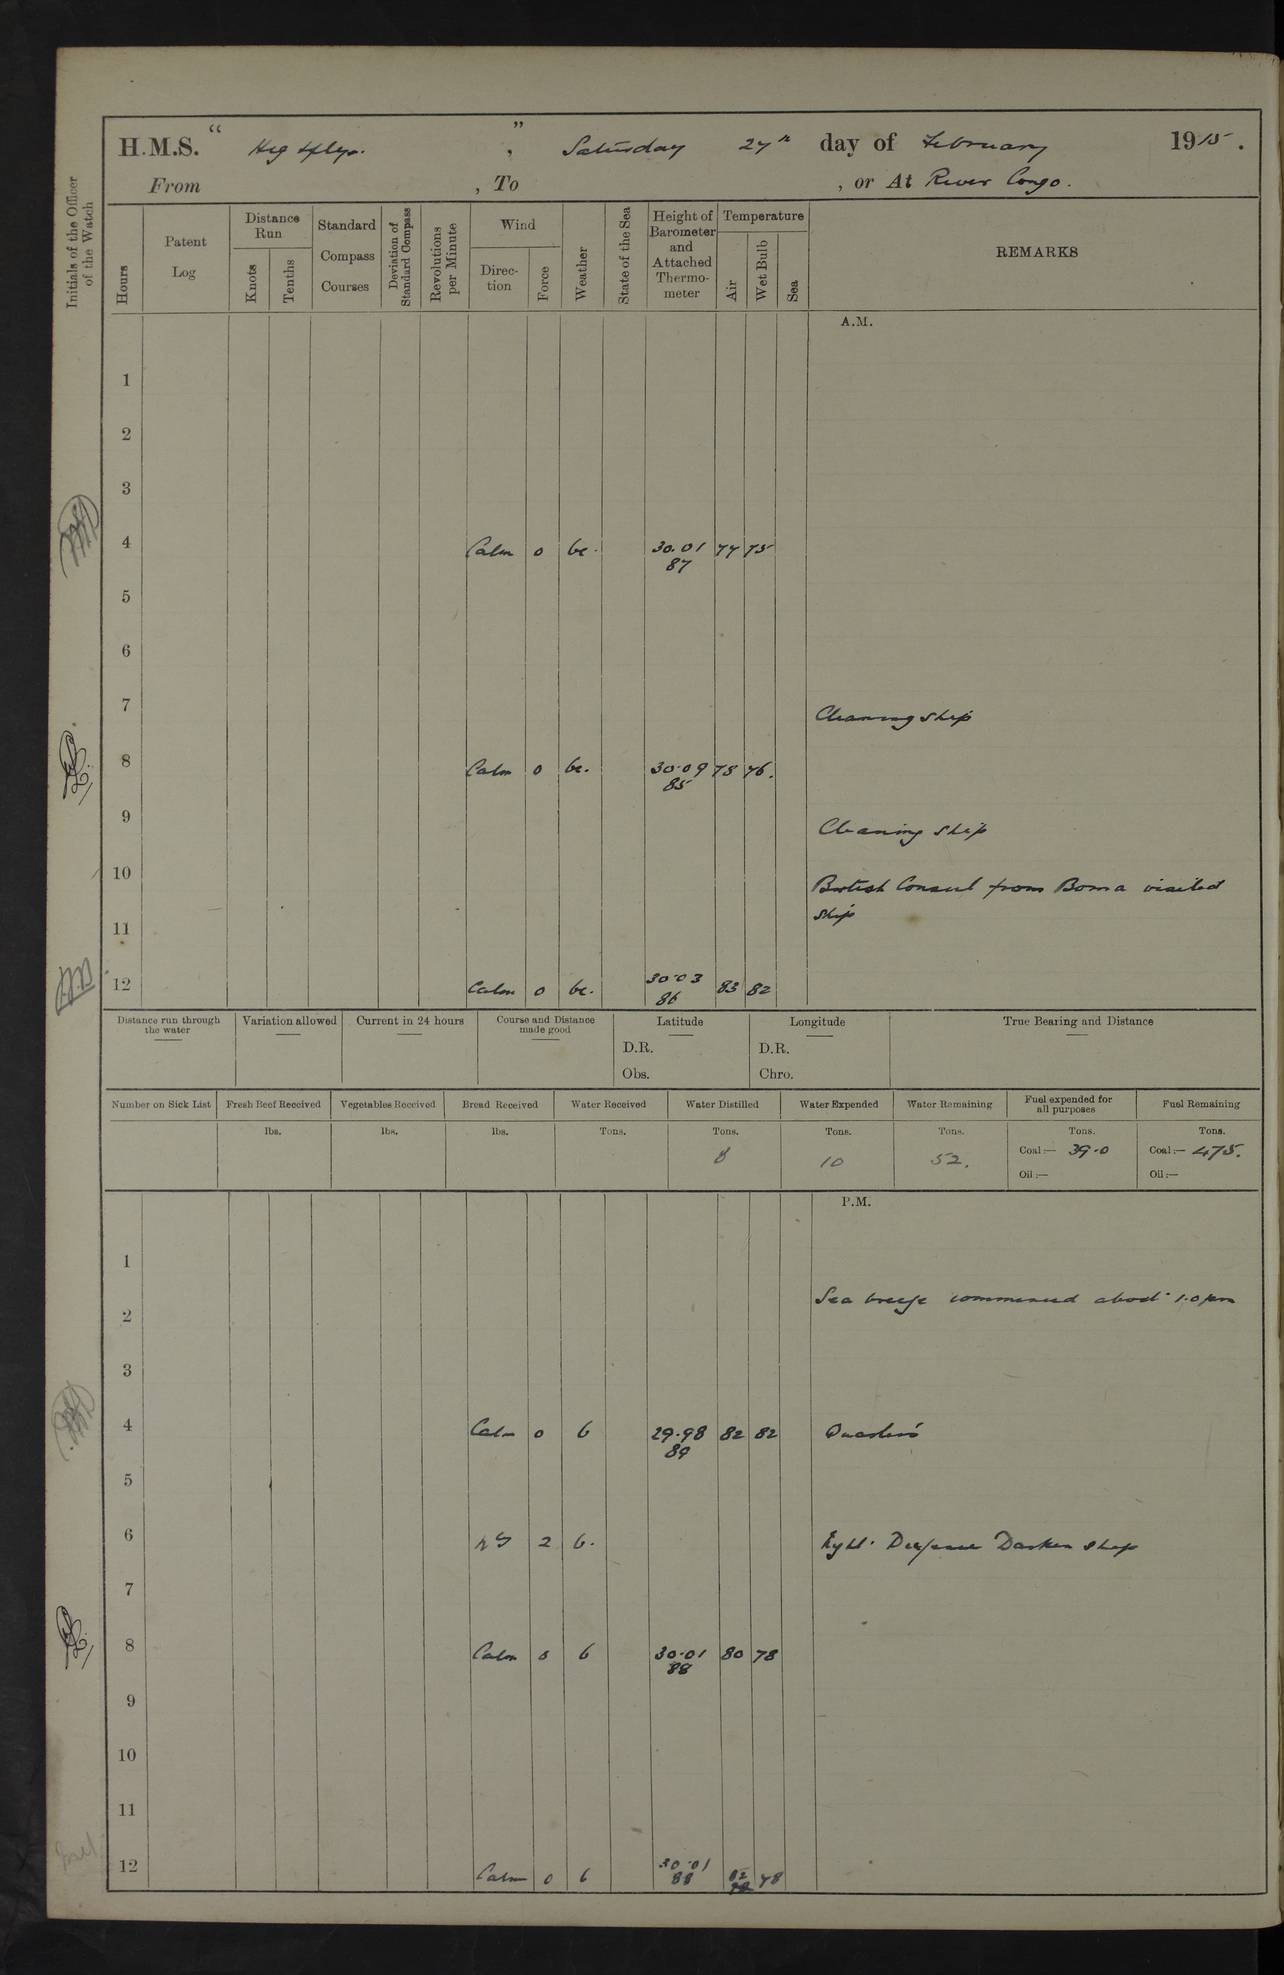 H.M.S. " Highflyer. ", Saturday 27th day of February 1915.
From , To , or At River Congo.
Initials of the Officer of the Watch
Hours
Patent Log
Distance Run
Knots
Tenths
Standard Compass Courses
Deviation of Standard Compass
Revolutions per Minute
Wind
Direction
Force
Weather
State of the Sea
Height of Barometer and Attached Thermometer
Temperature
Air
Wet Bulb
Sea
REMARKS
A.M.
1
2
3
4 Calm 0 bc. 30.01 77 75
87
5
6
7 Cleaning ship
8 Calm 0 bc. 30.09 78 76.
85
9 Cleaning ship
10 British Consul from Boma visited
ship
11
12 Calm 0 bc. 30.03 83 82
86
Distance run through the water
Variation allowed
Current in 24 hours
Course and Distance made good
Latitude
D.R.
Obs.
Longitude
D.R.
Chro.
True Bearing and Distance
Number on Sick List
Fresh Beef Received
lbs.
Vegetables Received
lbs.
Bread Received
lbs.
Water Received
Tons.
Water Distilled
Tons.
8
Water Expended
Tons.
10
Water Remaining
Tons.
52.
Fuel expended for all purposes
Tons.
Coal:— 39.0
Oil:—
Fuel Remaining
Tons.
Coal:— 475.
Oil:—
P.M.
1
Sea breeze commenced about 1.0 pm
2
3
4 Calm 0 b 29.98 82 82 Quarters
89
5
6 2 b. Darken ship
7
8 Calm 0 b 30.01 80 78
88
9
10
11
12 Calm 0 b 30.01 82 78
88